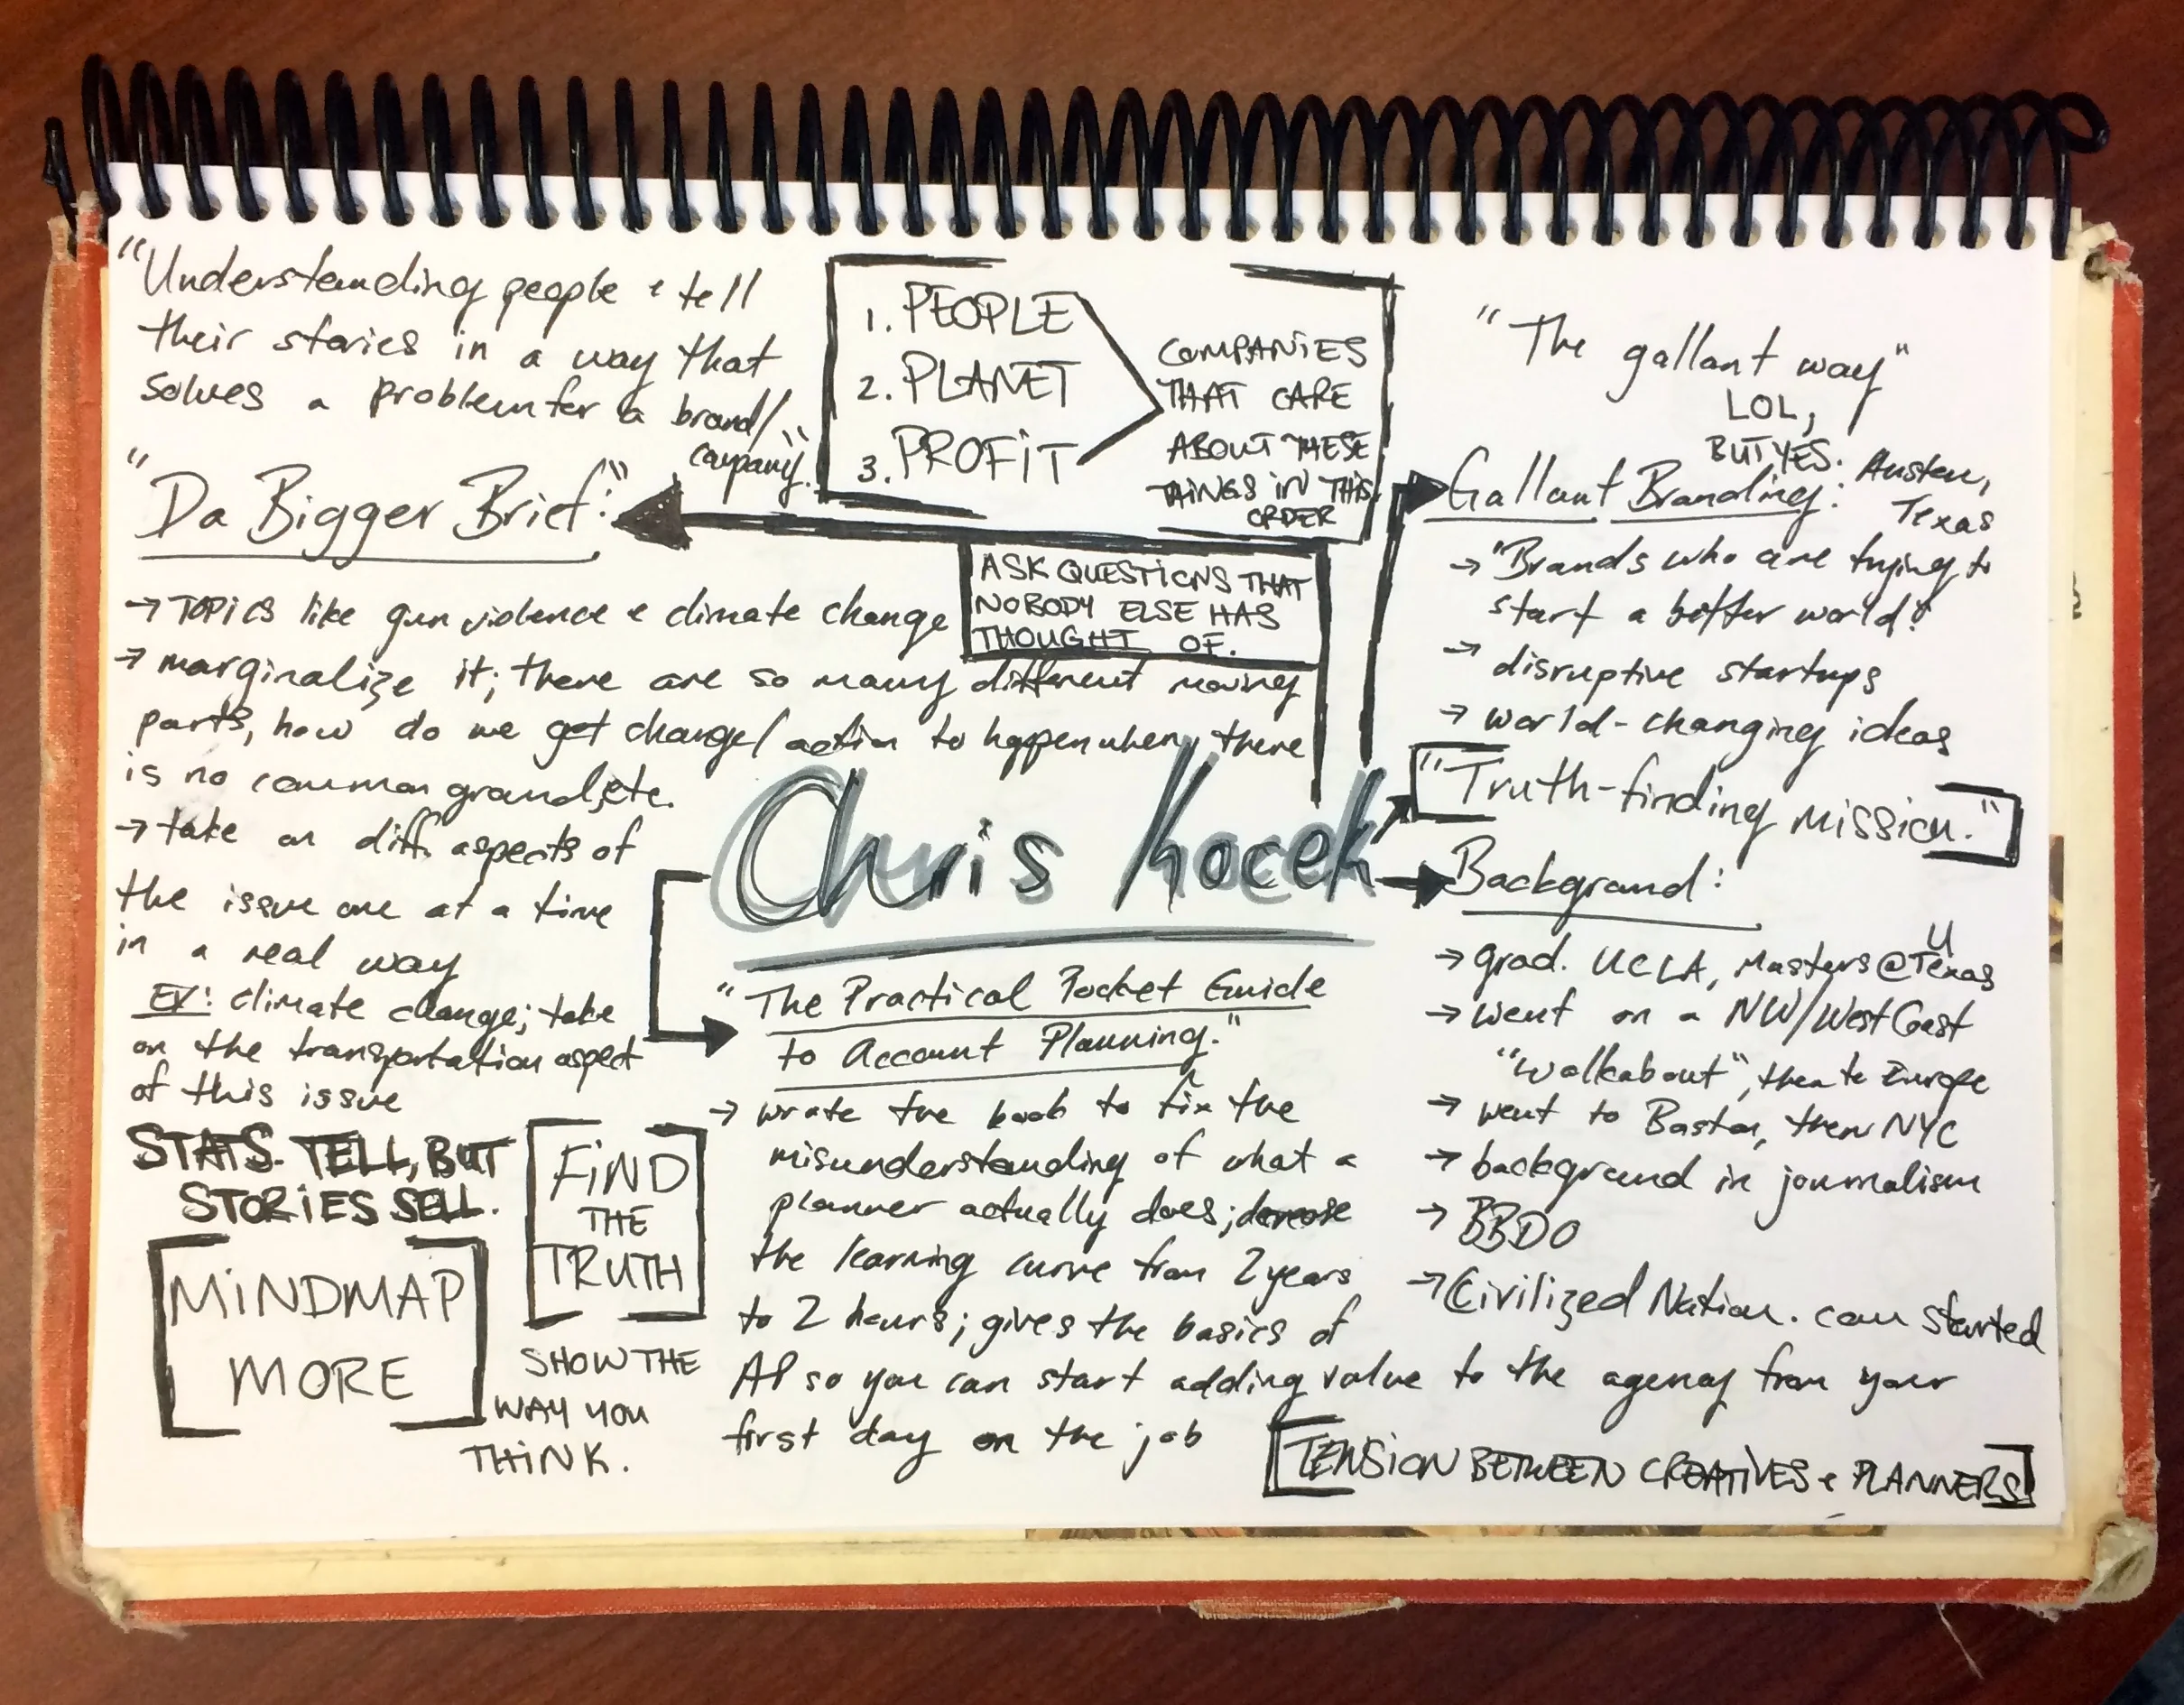 "Understanding people & tell
their stories in a way that
solves a problem for a brand/
company."
"Da Bigger Brief:"
→ TOPICS like gun violence & climate change
→ marginalize it; there are so many different moving
parts, how do we get change/action to happen when there
is no common ground, etc.
→ take on diff. aspects of
the issue one at a time
in a real way
EX: climate change; take
on the transportation aspect
of this issue
STATS. TELL, BUT
STORIES SELL.
[MINDMAP
MORE]
[FIND
THE
TRUTH]
SHOW THE
WAY YOU
THINK.
1. PEOPLE
2. PLANET
3. PROFIT
COMPANIES
THAT CARE
ABOUT THESE
THINGS IN THIS
ORDER
ASK QUESTIONS THAT
NOBODY ELSE HAS
THOUGHT OF.
Chris Kocek
"The Practical Pocket Guide
to Account Planning."
→ wrote the book to fix the
misunderstanding of what a
planner actually does; decrease
the learning curve from 2 years
to 2 hours; gives the basics of
AP so you can start adding value to the agency from your
first day on the job
"The gallant way"
LOL,
BUT YES.
Gallant Branding: Austen,
Texas
→ "Brands who are trying to
start a better world"
→ disruptive startups
→ world-changing ideas
["Truth-finding mission."]
Background:
→ grad. UCLA, Masters @ U Texas
→ went on a NW/West Coast
"walkabout", then to Europe
→ went to Boston, then NYC
→ background in journalism
→ BBDO
→ Civilized Nation. com started
[TENSION BETWEEN CREATIVES & PLANNERS]